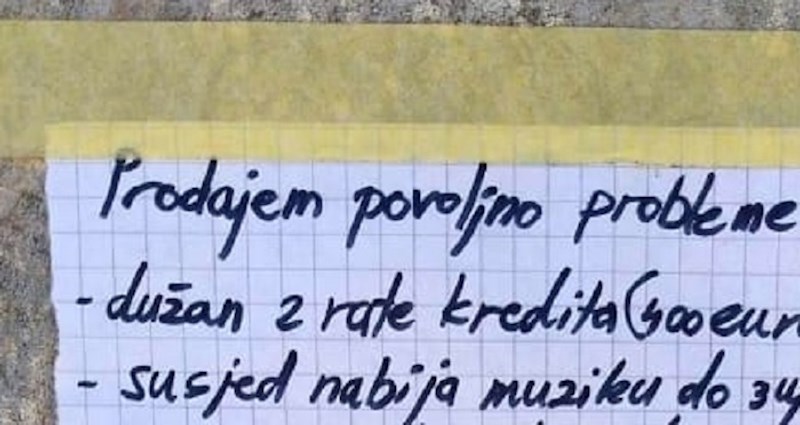 Prodajem povoljno probleme
- dužan 2 rate kredita (400 eur
- susjed nabija muziku do